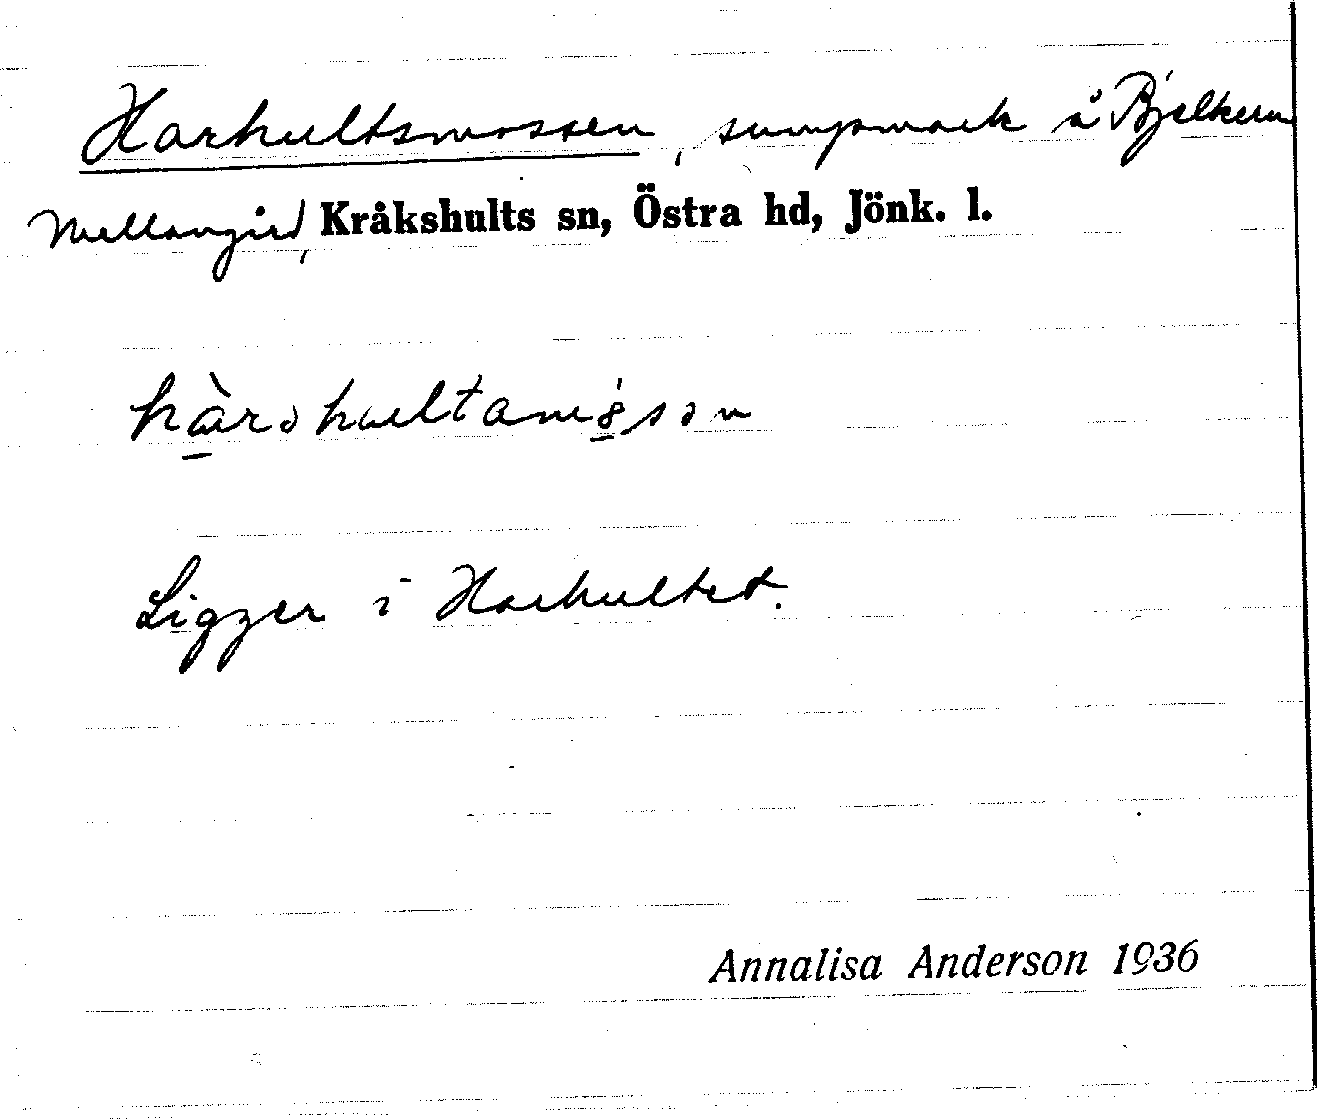 Harhultsmossen, sumpmark å Bjelkeru
Mellangård, Kråkshults sn, Östra hd, Jönk. l.
Ligger i Harhultet.
Annalisa Anderson 1936